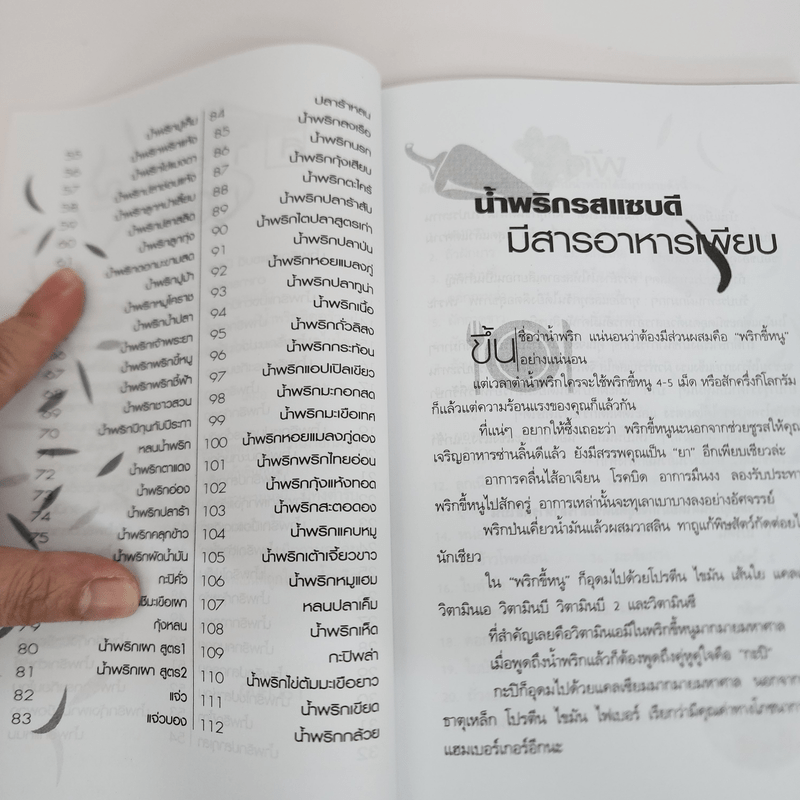 55 น้ำพริกปูเค็ม
56 น้ำพริกพริกแห้ง
57 น้ำพริกไข่มดดา
58 น้ำพริกปลาช่อนแห้ง
59 น้ำพริกลูกหนำเลี้ยบ
60 น้ำพริกปลาสลิด
61 น้ำพริกลูกทุ่ง
น้ำพริกดอกมะขามสด
น้ำพริกปูม้า
น้ำพริกหมูโคราช
น้ำพริกน้ำปลา
น้ำพริกเจ้าพระยา
66 น้ำพริกพริกขี้หนู
68 น้ำพริกพริกชี้ฟ้า
69 น้ำพริกชาวสวน
70 น้ำพริกมังคุดกับมีระกา
71 หลนน้ำพริก
72 น้ำพริกตาแดง
73 น้ำพริกอ่อง
74 น้ำพริกปลาร้า
75 น้ำพริกคลุกข้าว
น้ำพริกผัดน้ำมัน
กะปิคั่ว
มะเขือเผา
79 กุ้งหลน
80 น้ำพริกเผา สูตร1
81 น้ำพริกเผา สูตร2
82 แจ่ว
83 แจ่วบอง
84 ปลาร้าหลน
85 น้ำพริกลงเรือ
86 น้ำพริกนรก
87 น้ำพริกกุ้งเสียบ
88 น้ำพริกตะไคร้
89 น้ำพริกปลาร้าสับ
90 น้ำพริกไตปลาสูตรเก่า
91 น้ำพริกปลาป่น
92 น้ำพริกหอยแมลงภู่
93 น้ำพริกปลาทูน่า
94 น้ำพริกเนื้อ
95 น้ำพริกถั่วลิสง
96 น้ำพริกกระท้อน
97 น้ำพริกแอปเปิลเขียว
98 น้ำพริกมะกอกสด
99 น้ำพริกมะเขือเทศ
100 น้ำพริกหอยแมลงภู่ดอง
101 น้ำพริกพริกไทยอ่อน
102 น้ำพริกกุ้งแห้งทอด
103 น้ำพริกสะตอดอง
104 น้ำพริกแคบหมู
105 น้ำพริกเต้าเจี้ยวขาว
106 น้ำพริกหมูแฮม
107 หลนปลาเค็ม
108 น้ำพริกเห็ด
109 กะปิพล่า
110 น้ำพริกไข่ต้มมะเขือยาว
111 น้ำพริกเขียด
112 น้ำพริกกล้วย
น้ำพริกรสแซบดี
มีสารอาหารเพียบ
ขึ้นชื่อว่าน้ำพริก แน่นอนว่าต้องมีส่วนผสมคือ "พริกขี้หนู"
อย่างแน่นอน
แต่เวลาตำน้ำพริกใครจะใช้พริกขี้หนู 4-5 เม็ด หรือสักครึ่งกิโลกรัม
ก็แล้วแต่ความร้อนแรงของคุณก็แล้วกัน
ที่แน่ๆ อยากให้ซึ้งเถอะว่า พริกขี้หนูนะนอกจากช่วยชูรสให้คุณ
เจริญอาหารซ่านลิ้นดีแล้ว ยังมีสรรพคุณเป็น "ยา" อีกเพียบเชียวล่ะ
อาการคลื่นไส้อาเจียน โรคบิด อาการมึนงง ลองรับประทา
พริกขี้หนูไปสักครู่ อาการเหล่านั้นจะทุเลาเบาบางลงอย่างอัศจรรย์
พริกป่นเคี่ยวน้ำมันแล้วผสมวาสลิน ทาถูแก้พิษสัตว์กัดต่อยไ
นักเชียว
ใน "พริกขี้หนู" ก็อุดมไปด้วยโปรตีน ไขมัน เส้นใย แคล
วิตามินเอ วิตามินบี วิตามินบี 2 และวิตามินซี
ที่สำคัญเลยคือวิตามินเอมีในพริกขี้หนูมากมายมหาศาล
เมื่อพูดถึงน้ำพริกแล้วก็ต้องพูดถึงคู่หูคู่ใจคือ "กะปิ"
กะปิก็อุดมไปด้วยแคลเซียมมากมายมหาศาล นอกจาก
ธาตุเหล็ก โปรตีน ไขมัน ไฟเบอร์ เรียกว่ามีคุณค่าทางโภชนาก
แฮมเบอร์เกอร์อีกนะ